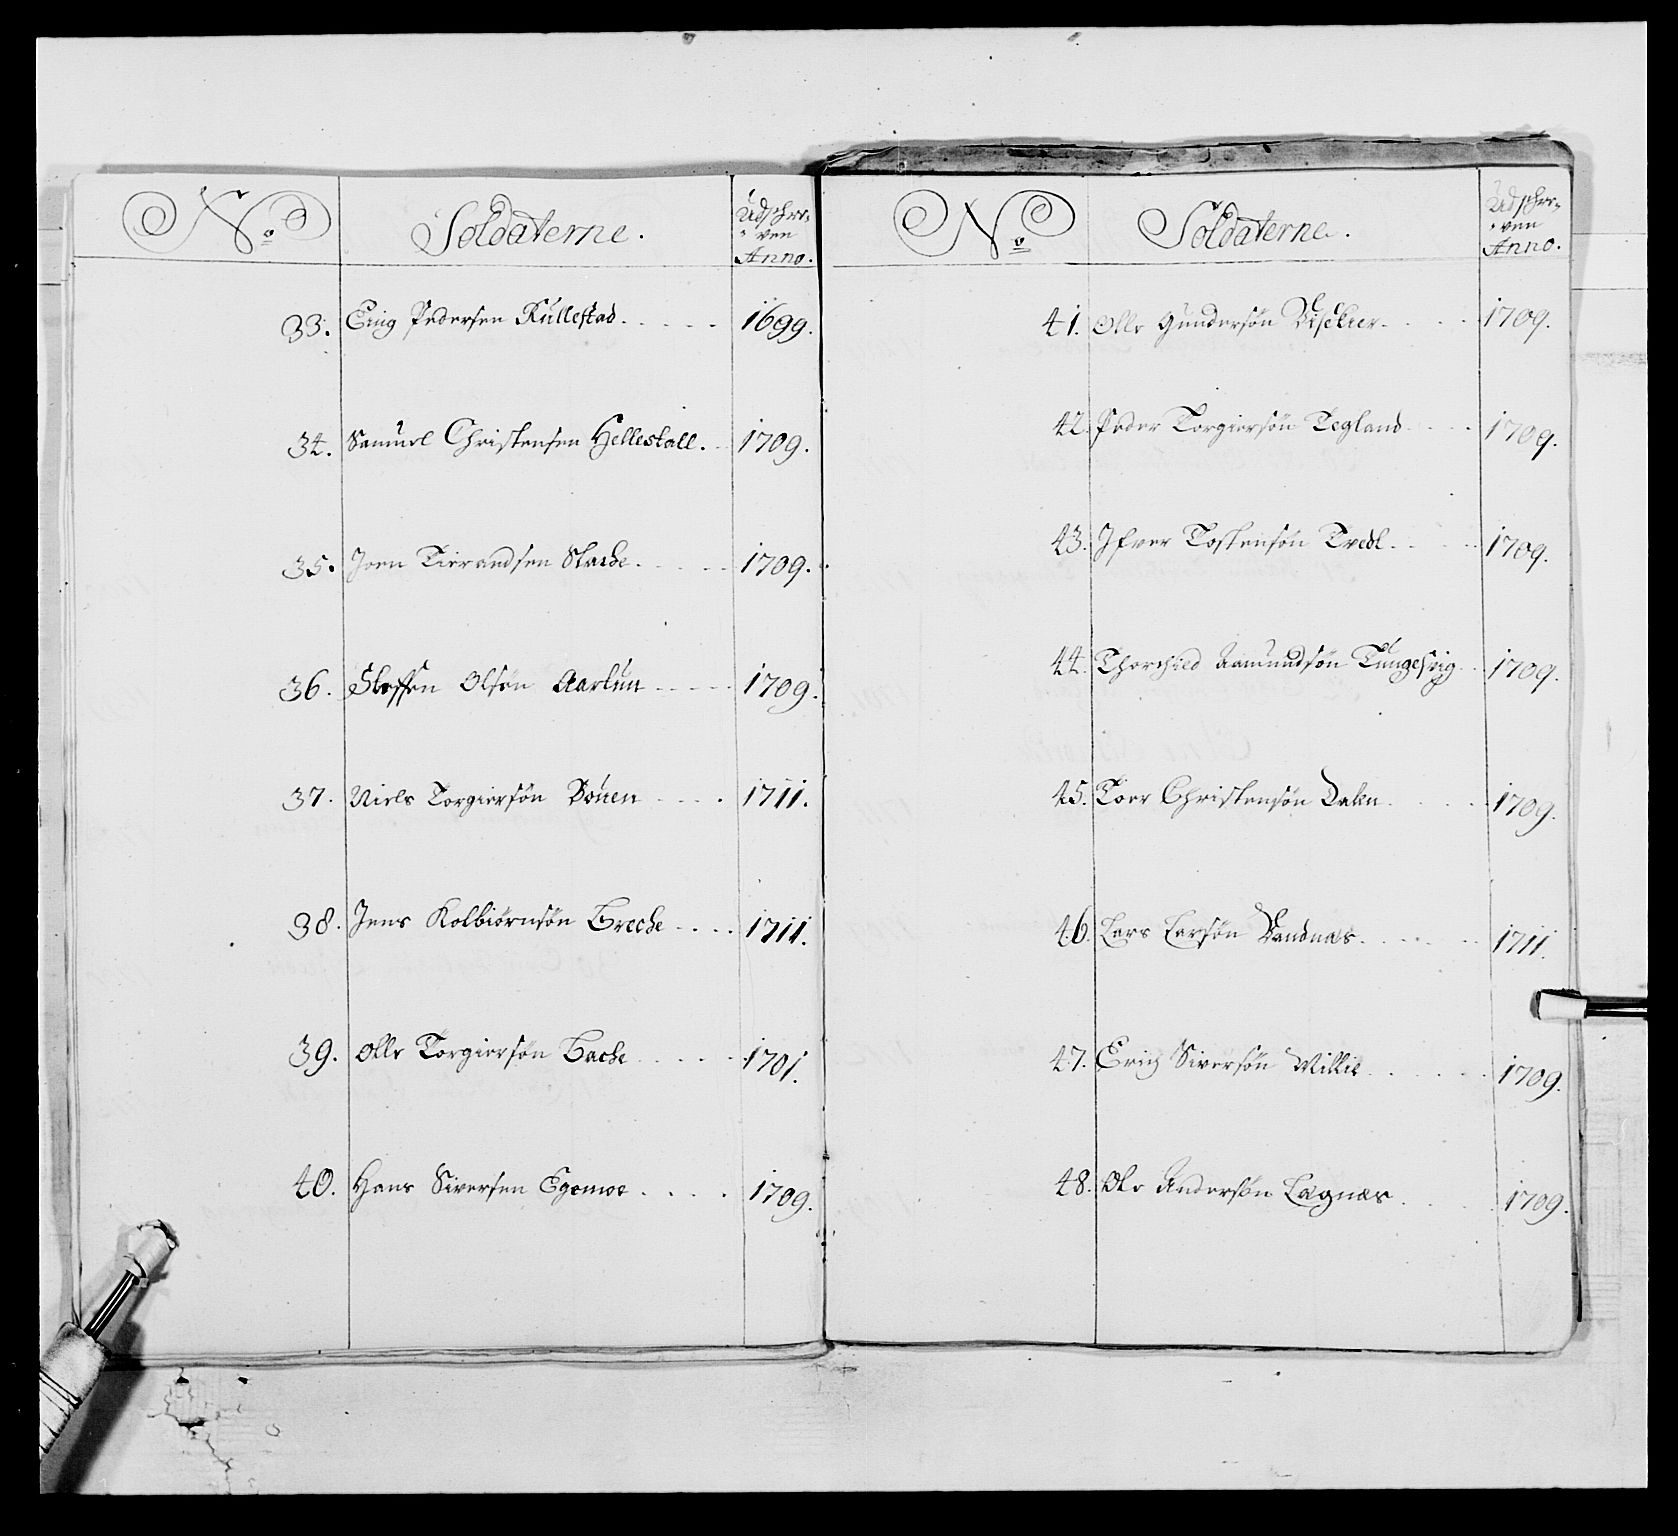 No. Soldaterne. Udschre-
ven
Anno.
33. Erug Pedersen Kullestad. 1699.
34. Samuel Christensen Hellestall. 1709.
35. Joen Tierandsen Stache. 1709.
36. Steffen Olsøn Aarlun 1709.
37. Niels Torgiersøn Bouen 1711.
38. Jens Kolbiørnsøn Breche 1711.
39. Olle Torgiersøn Bache 1701.
40. Hans Siversen Egemoe 1709.
No. Soldaterne. Udschre-
ven
Anno.
41. Olle Gundersøn 1709.
42. Peder Torgiersøn Tegland 1709.
43. Ifver Tostensøn Tvedt 1709.
44. Thorchild Aamundsøn Tungesvig 1709.
45. Toer Christensøn Dalen 1709.
46. Lars Larsøn Vandnæs 1711.
47. Erich Siversøn Millie 1709.
48. Ole Andersøn Lægnæs 1709.